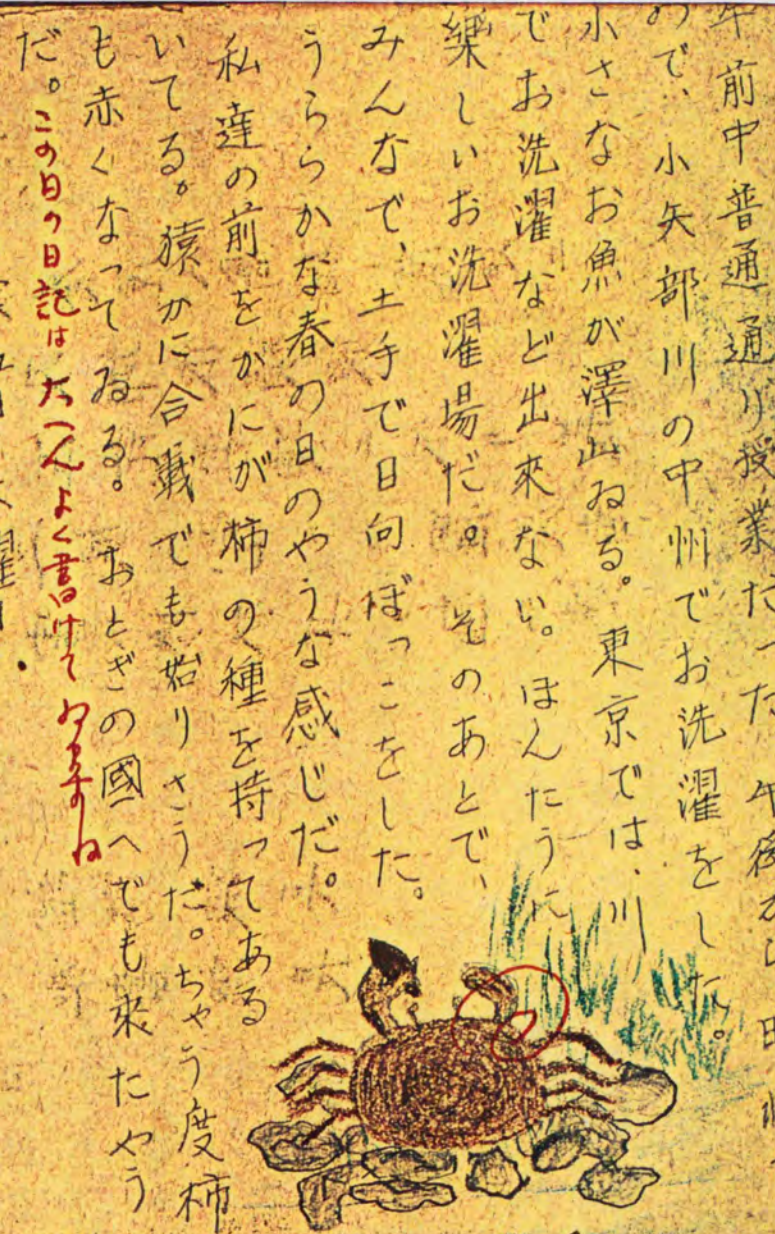 午前中普通通り授業だった。午後から
ので、小矢部川の中州でお洗濯をした。
小さなお魚が澤山ゐる。東京では、川
でお洗濯など出來ない。ほんたうに
樂しいお洗濯場だ。そのあとで、
みんなで、土手で日向ぼっこをした。
うららかな春の日のやうな感じだ。
私達の前をかにが柿の種を持ってある
いてる。猿かに合戰でも始りさうだ。ちゃう度柿
も赤くなってゐる。おとぎの國へでも來たやう
だ。この日の日記は大へんよく書けてゐますね
曜日